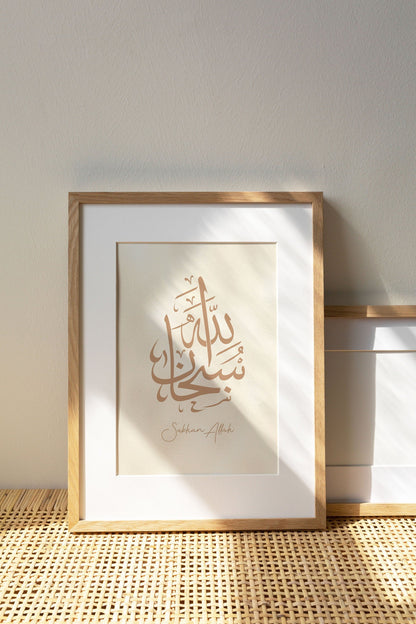 سُبْحَانَ اللّٰه
Subhan Allah